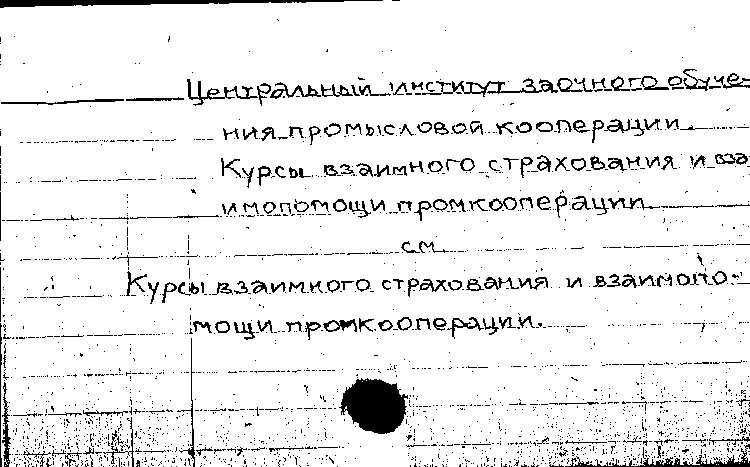 Центральный институт заочного обуче-
ния промысловой кооперации.
Курсы взаимного страхования и вза
имопомощи промкооперации.
см.
Курсы взаимного страхования и взаимопо-
мощи промкооперации.